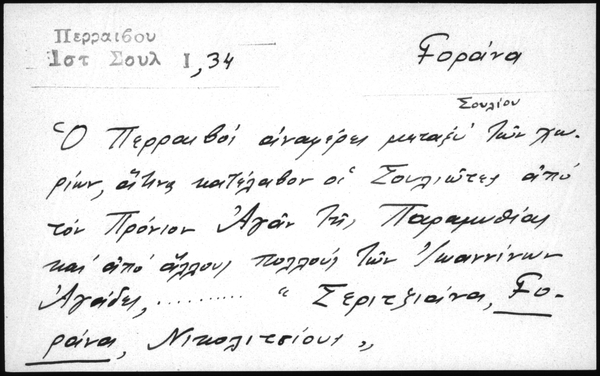 Περραιβου
Ιστ Σουλ Ι, 34
Γοράνα
Σουλίου
Ὁ Περραιβός ἀναφέρει μεταξύ τῶν χω-
ρίων, ἅτινα κατέλαβον οἱ Σουλιῶτες ἀπό
τόν Πρόνιον Ἀγᾶν τῆς Παραμυθίας
καί ἀπό ἄλλους πολλούς τῶν Ἰωαννίνων
Ἀγάδες, .......... "Σεριτζιάνα, Γο-
ράνα, Νικολιτσίους"